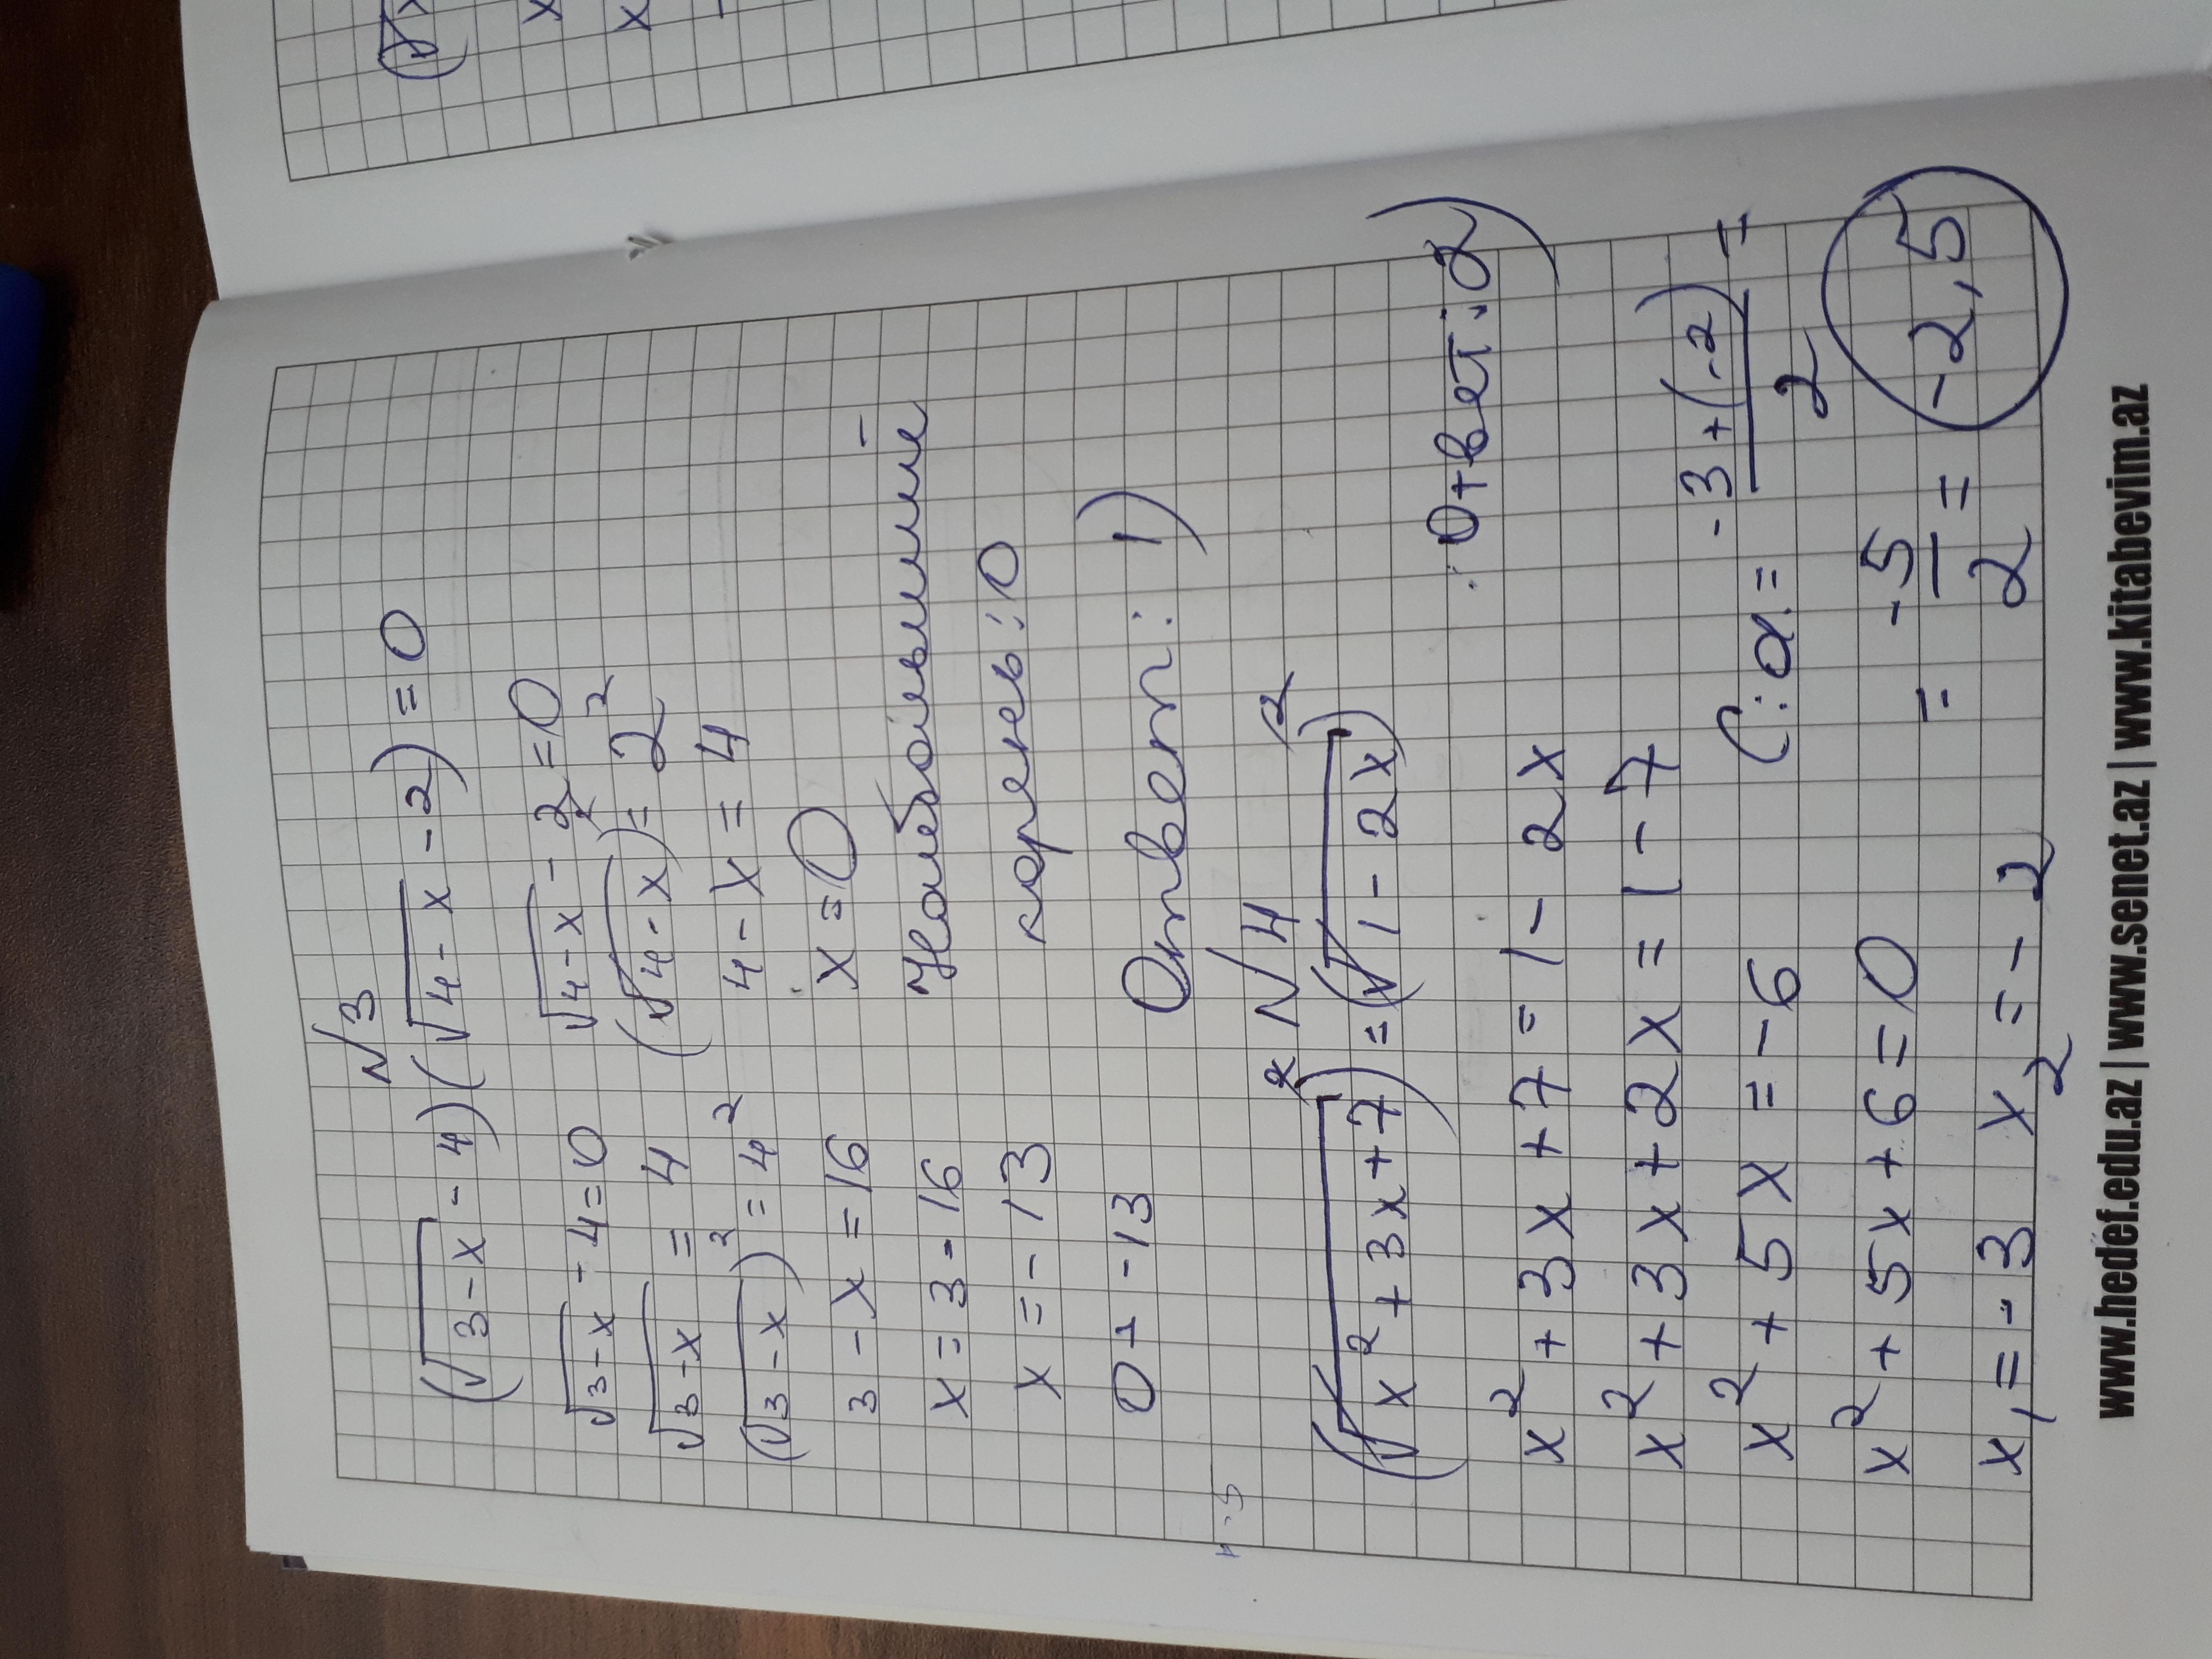 N3
(√3-x - 4)(√4-x - 2) = 0
√3-x - 4=0 √4-x - 2=0
√3-x = 4 (√4-x)² = 2²
(√3-x)² = 4² 4-x = 4
3-x=16 x=0
x=3-16 Наибольший
x=-13 корень: 0
0+-13
Ответ: 1)
N4
(√x²+3x+7)²=(√1-2x)²
Ответ: 2)
x²+3x+7=1-2x
x²+3x+2x=1-7
x²+5x=-6
С: а. = -3+(-2)/2 =
x²+5x+6=0
= -5/2 = -2,5
x₁=-3 x₂=-2
www.hedef.edu.az | www.senet.az | www.kitabevim.az